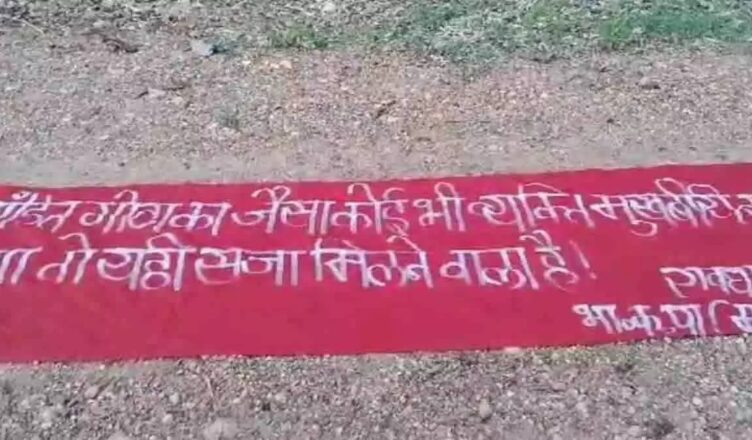 गोणका जैसा कोई भी व्यक्ति मुखबीरी
तो यही सजा मिलने वाला है!
भा.क.पा